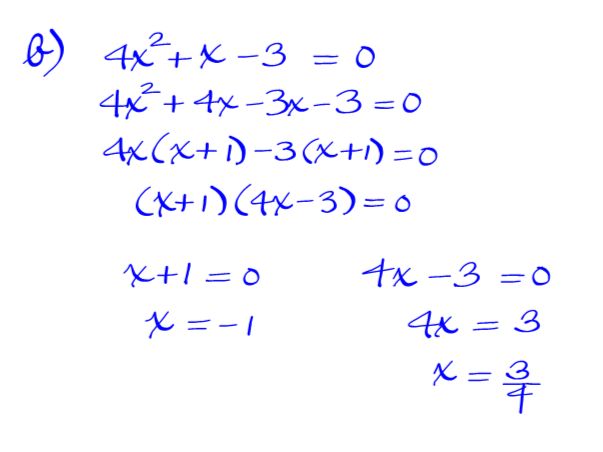 b) 4x² + x - 3 = 0
4x² + 4x - 3x - 3 = 0
4x(x+1) - 3(x+1) = 0
(x+1)(4x-3) = 0
x+1 = 0 4x - 3 = 0
x = -1 4x = 3
x = 3/4